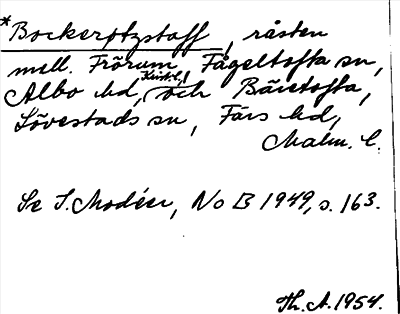 *Bockerptzstaff, råsten
mell. Frörum, Fågeltofta sn,
Krist. l.,
Albo hd, och Bäretofta,
Lövestads sn, Färs hd,
Malm. l.
Se I. Modéer, No B 1949, s. 163.
Th. A. 1954.